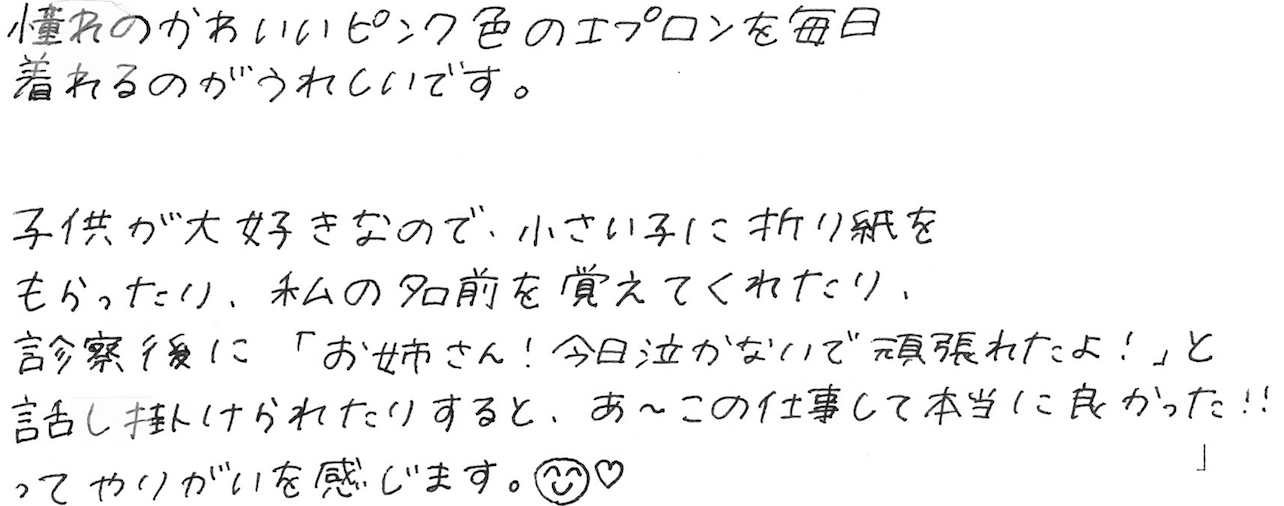 憧れのかわいいピンク色のエプロンを毎日
着れるのがうれしいです。
子供が大好きなので、小さい子に折り紙を
もらったり、私の名前を覚えてくれたり、
診察後に「お姉さん!今日泣かないで頑張れたよ!」と
話し掛けられたりすると、あ〜この仕事して本当に良かった!!
ってやりがいを感じます。😊♡
」